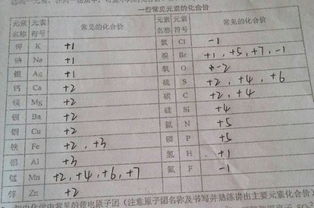 一些常见元素的化合价
元素名称 元素符号 常见的化合价 元素名称 元素符号 常见的化合价
钾 K +1 氯 Cl -1
钠 Na +1 溴 Br +1, +5, +7, -1
银 Ag +1 氧 O -2
钙 Ca +2 硫 S +2, +4, +6
镁 Mg +2 碳 C +2, +4
钡 Ba +2 硅 Si +4
铜 Cu +2 氮 N +5
铁 Fe +2, +3 磷 P +5
铝 Al +3 氢 H +1
锰 Mn +2, +4, +6, +7 氟 F -1
锌 Zn +2